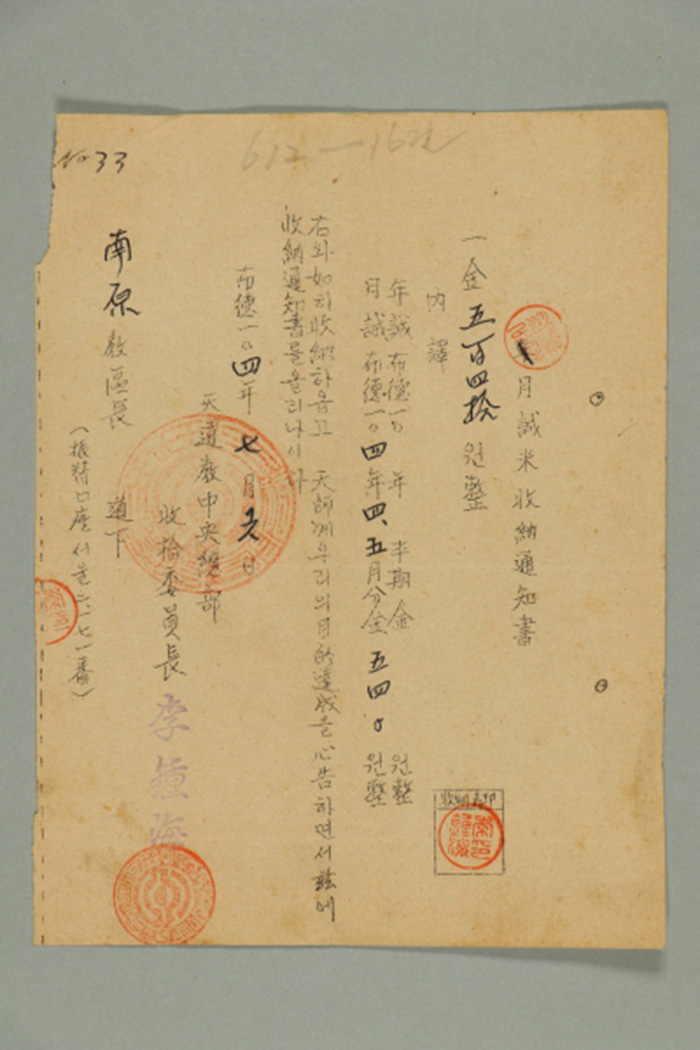 No 33
612—16
月誠米收納通知書
一金五百四拾원整
內譯
年誠布德一〇 年 半期金 원整
月誠布德一〇四年四、五月分金五四〇원整
右와如히收納하옵고 天師께우리의目的達成을心告하면서玆에
收納通知書를올리나이다
布德一〇四年七月 日
天道敎中央總部
收拾委員長 李 海
南原敎區長 道下
(振替口座서울二一七一番)